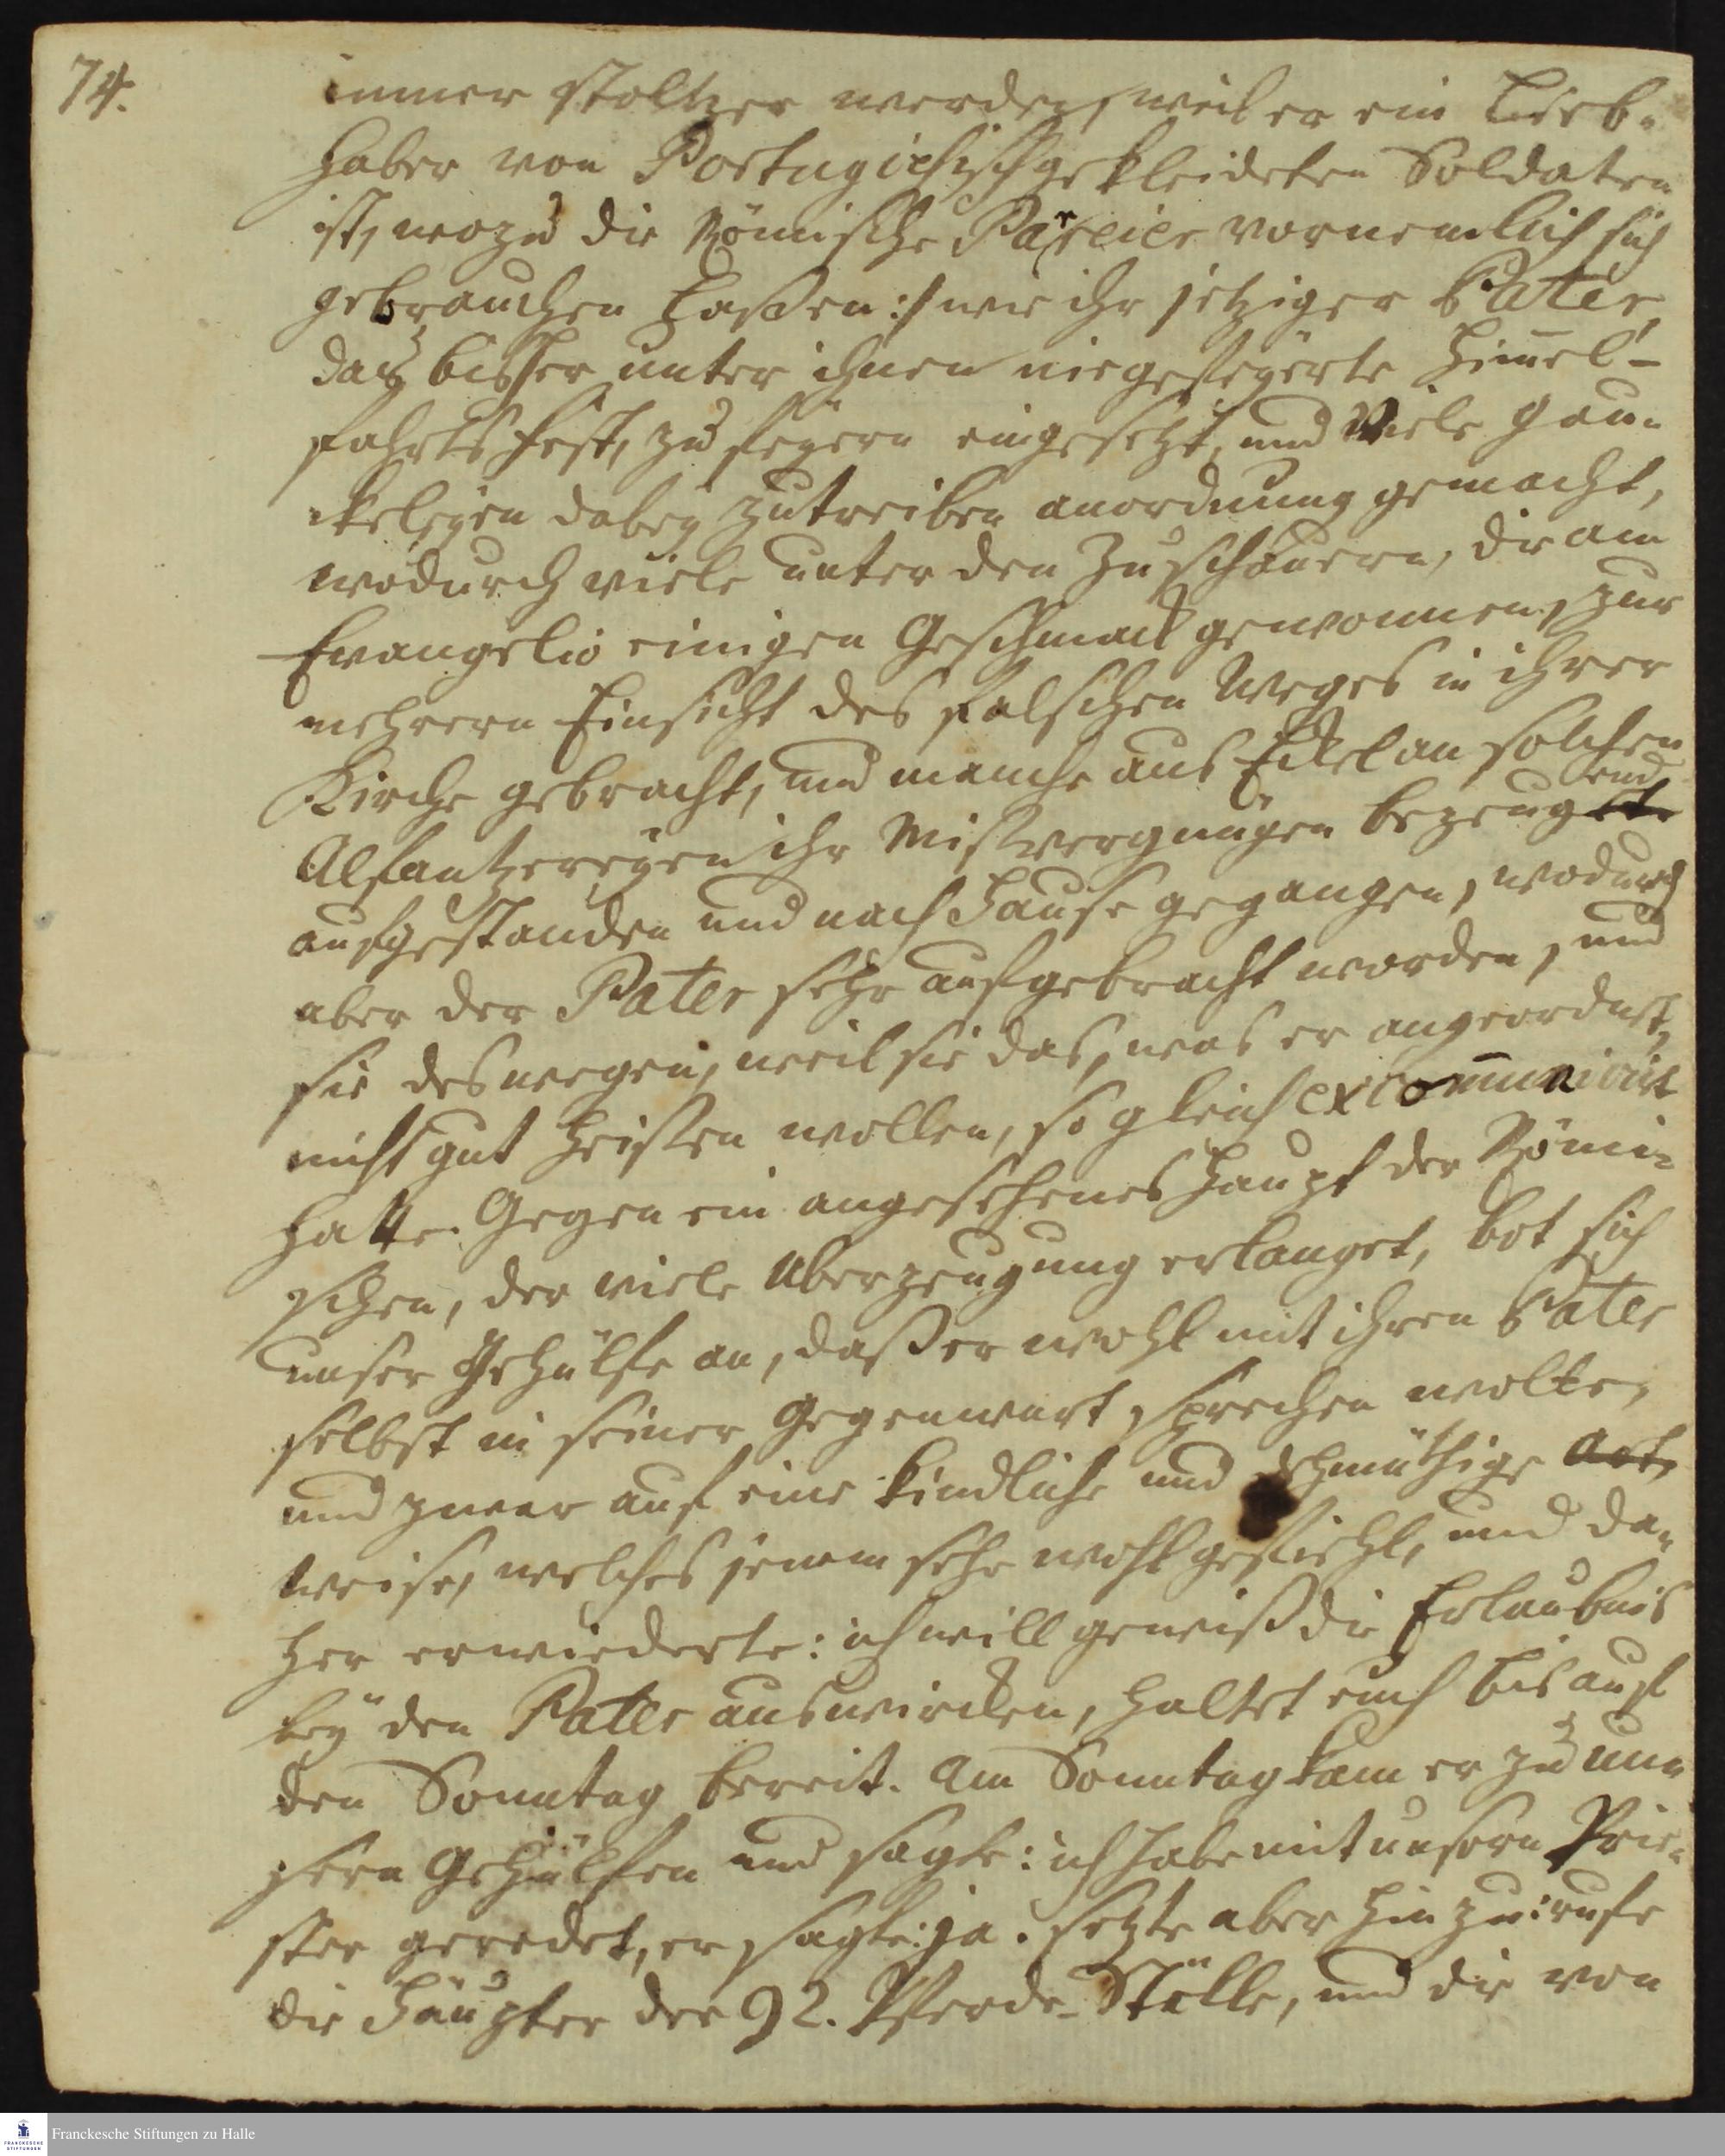 74.
immer stoltzer werden, weil er ein Lieb-
haber von Portugiesisch gekleideten Soldaten
ist, wozu die Römische Pareier vornemlich sich
gebrauchen laßen :/ wie ihr jetziger Pater,
das bißher unter ihnen nie gefeyerte Him̅el-
fahrts Fest, zu feyern eingesetzt, und Viele Gau-
ckeleyen dabey zutreiben anordnung gemacht,
wodurch viele unter den Zuschauern, die am
Evangelio einigen Geschmack gewonnen, zur
mehrern Einsicht des falschen Weges in ihrer
Kirche gebracht, und manche aus Eckel an solchen
Alfantzereyen ihr Misvergnügen bezeugend
aufgestanden und nach Hause gegangen, wodurch
aber der Pater sehr aufgebracht worden, und
sie deswegen, weil sie das, was er angeordnet,
nicht gut heißen wollen, so gleich excom̅unicirt
hatte. Gegen ein angesehenes Haupt der Römi-
schen, der viele Uberzeugung erlanget, bot sich
unser Gehülfe an, daß er wohl mit ihren Pater
selbst in seiner Gegenwart sprechen wolte,
und zwar auf eine kindliche und demüthige Art,
weise, welches jenem sehr wohl gefiehl, und da-
her erwiederte: ich will gewiß die Erlaubnis
bey den Pater auswircken, haltet euch bis auf
den Sonntag bereit. Am Sonntag kam er zu un-
sern Gehülfen und sagte: ich habe mit unsern Prie-
ster geredet, er sagte: ja. setzte aber hinzu: rufe
die Häupter der 92. Pferde-Ställe, und die von
Franckesche Stiftungen zu Halle